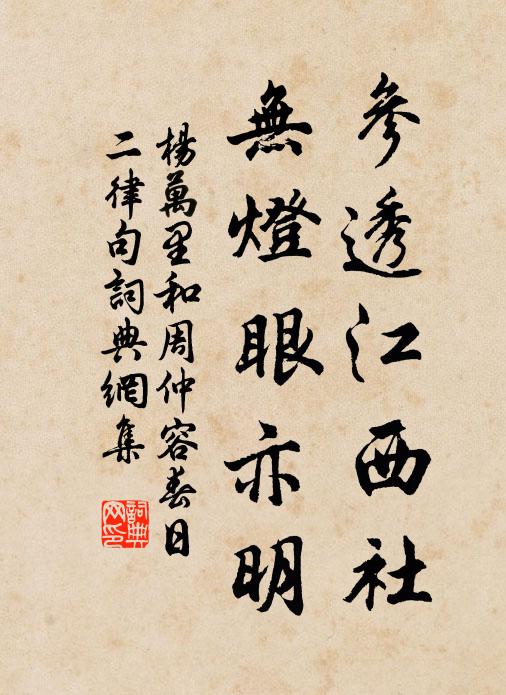 參透江西社
無燈眼亦明
楊萬里和周仲容春日
二律句詞典網集
詞典
网印